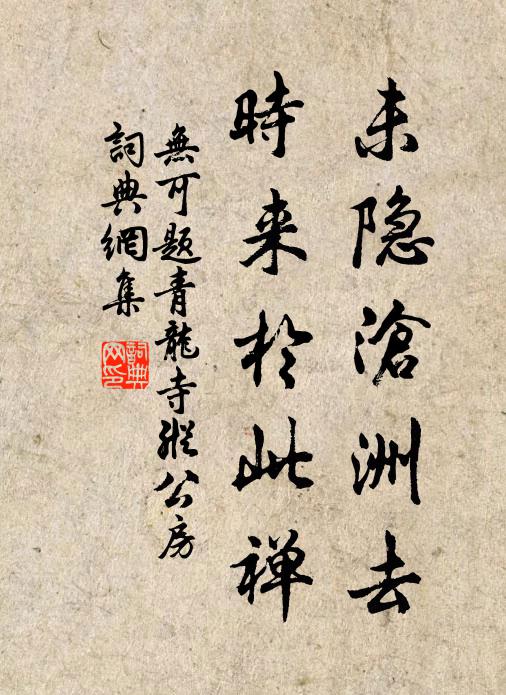 未隐滄洲去
時来於此禅
無可题青龍寺縱公房
詞典網集
詞典
网印